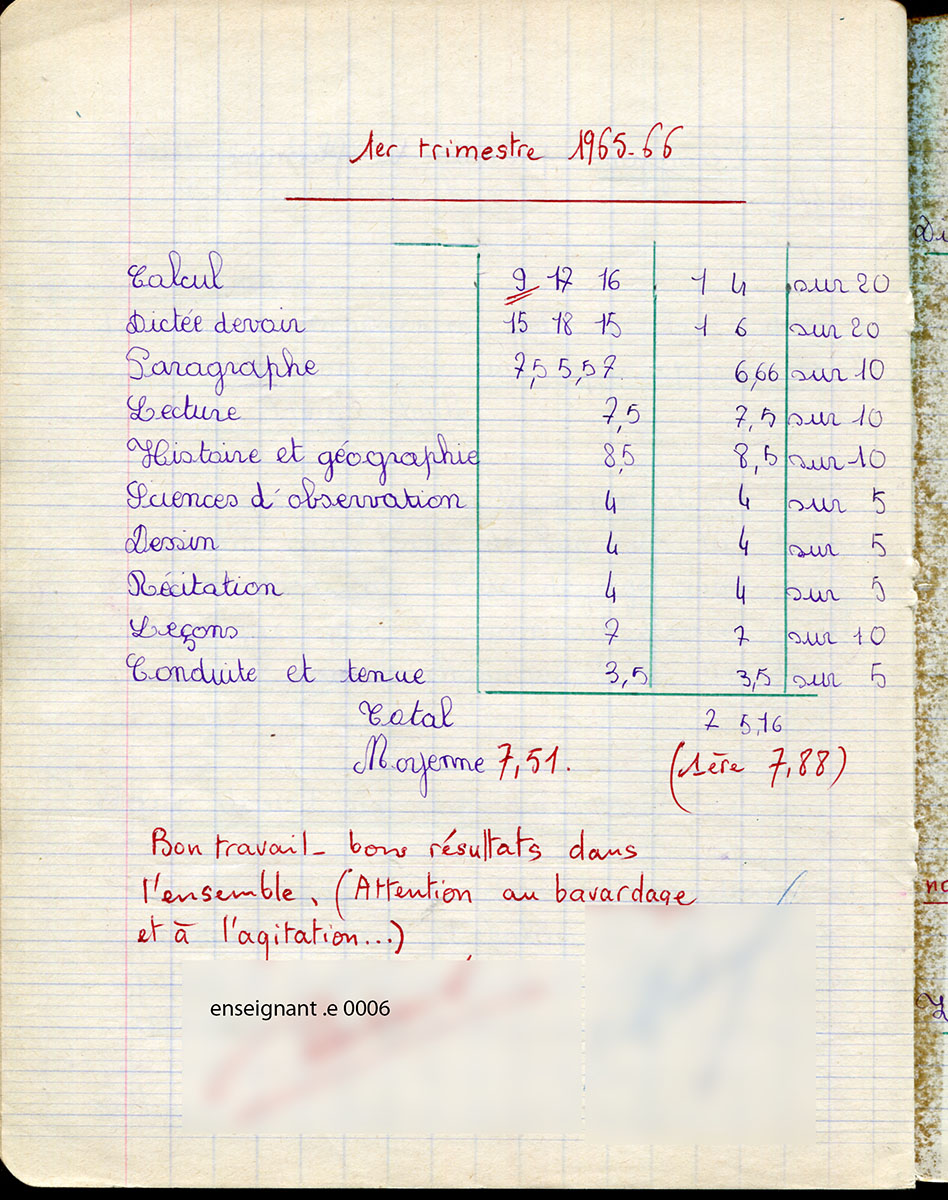 1er trimestre 1965-66
Calcul 9 17 16 1 4 sur 20
Dictée devoir 15 18 15 1 6 sur 20
Paragraphe 7,5 5,5 7 6,66 sur 10
Lecture 7,5 7,5 sur 10
Histoire et géographie 8,5 8,5 sur 10
Sciences d'observation 4 4 sur 5
Dessin 4 4 sur 5
Récitation 4 4 sur 5
Leçons 7 7 sur 10
Conduite et tenue 3,5 3,5 sur 5
Total 7 5,16
Moyenne 7,51. (1ère 7,88)
Bon travail - bons résultats dans
l'ensemble. (Attention au bavardage
et à l'agitation...)
enseignant .e 0006